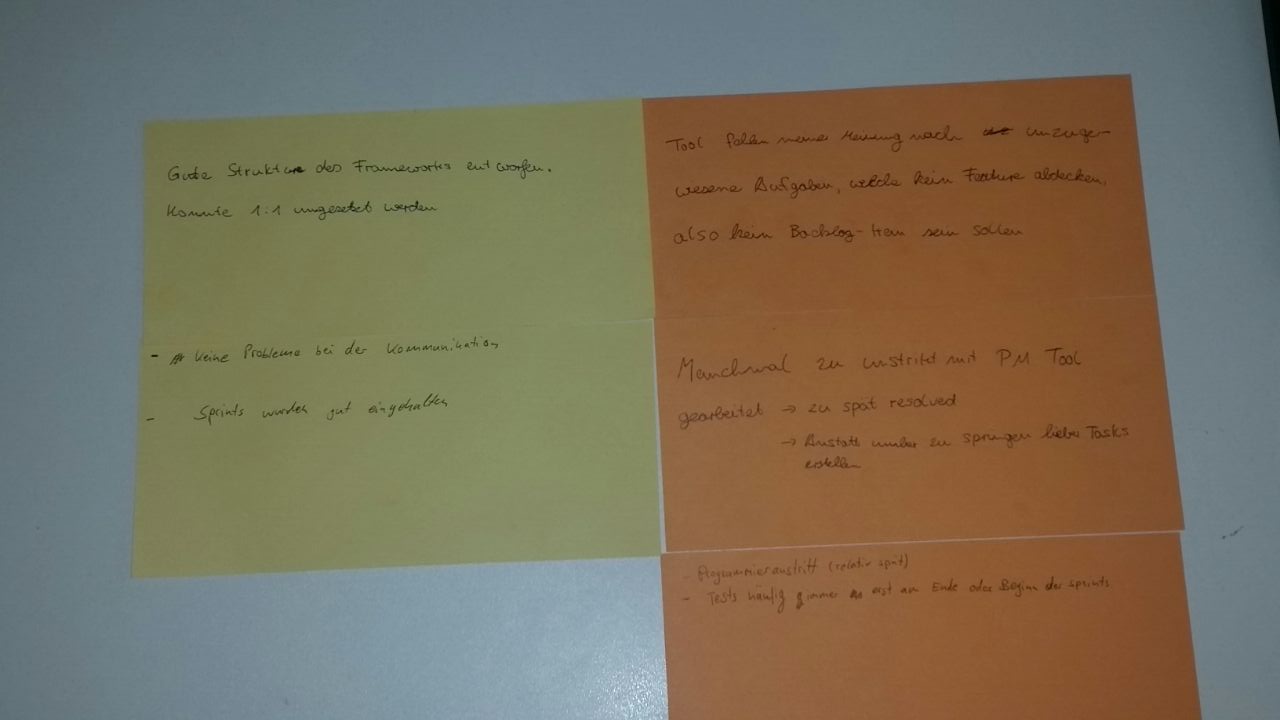 Gute Struktur des Frameworks entworfen.
Konnte 1:1 umgesetzt werden
- keine Probleme bei der Kommunikation
- Sprints wurden gut eingehalten
Tool fehlen meiner Meinung nach unzuge-
wiesene Aufgaben, welche kein Feature abdecken,
also kein Backlog-Item sein sollen
Manchmal zu mit PM Tool
gearbeitet → zu spät resolved
→ Anstatt umher zu springen lieber Tasks
erstellen
- Programmieraustritt (relativ spät)
- Tests häufig immer erst am Ende oder Beginn der Sprints